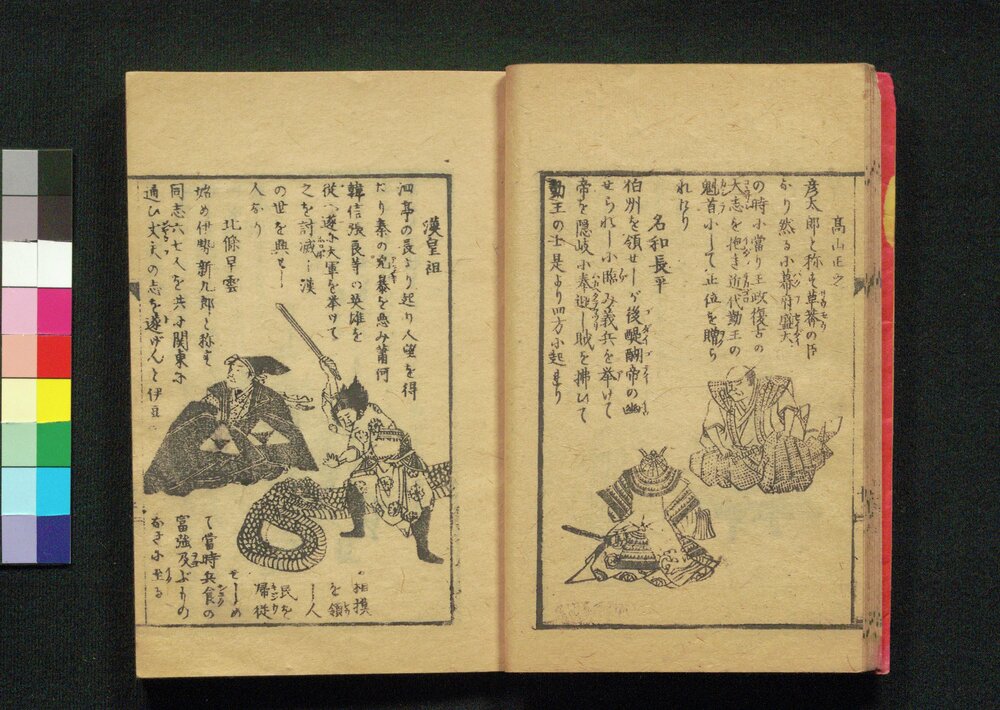 高山正之
彦太郎と称す草莽の臣
なり然るに幕府盛大
の時に当り王政復古の
大志を抱き近代勤王の
魁首にして正位を贈ら
れけり
名和長平
伯州を領せしが後醍醐帝の幽
せられしに臨み義兵を挙げて
帝を隠岐に奉迎し賊を拂いて
勤王の士是より四方に起まり
漢皇祖
泗亭の長より起り人望を得
たり秦の兇暴を悪み蕭何
韓信張良等の英雄を
従へ遂に大軍を挙げて
之を討滅し漢
の世を興せし
人なり
北條早雲
始め伊勢新九郎と称す
同志六七人を共に関東に
通ひ丈夫の志を遂げんと伊豆
相摸
を領
し人
民を
帰従
せしめ
て當時兵食の
富強及ぶもの
なきに至る